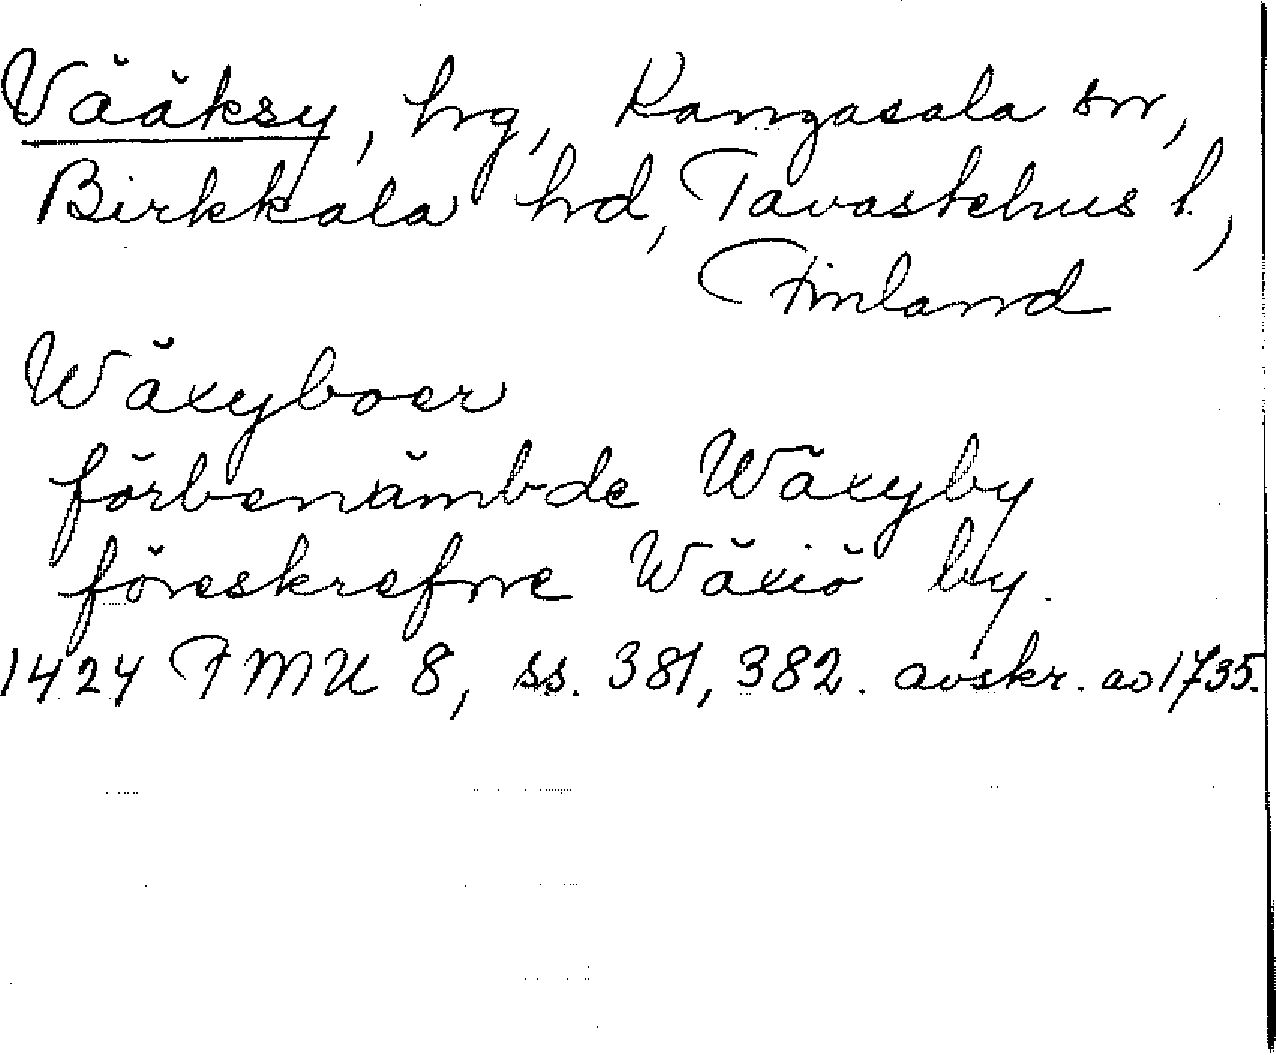 Vääksy, hrg, Kangasala sn,
Birkkala hrd, Tavastehus l.,
Finland
Wäxyboer
förbenämbde Wäxyby
föreskrefne Wäxiö by.
1424 FMU 8, ss. 381, 382. avskr. av 1735.